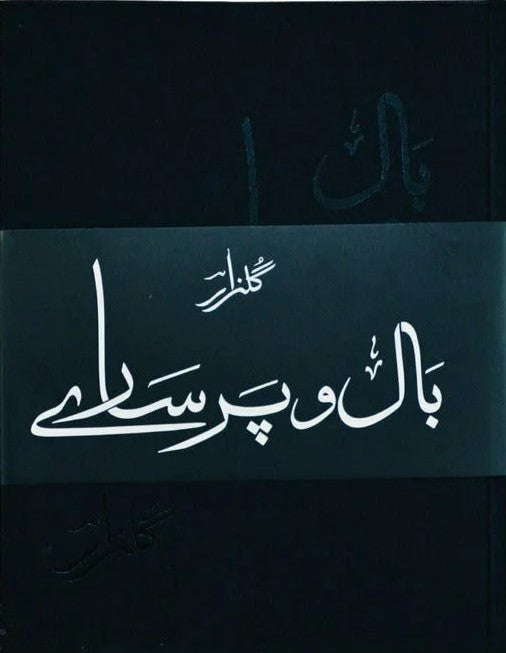 بال
ا
گلزار
بال و پر سارے
گلزار